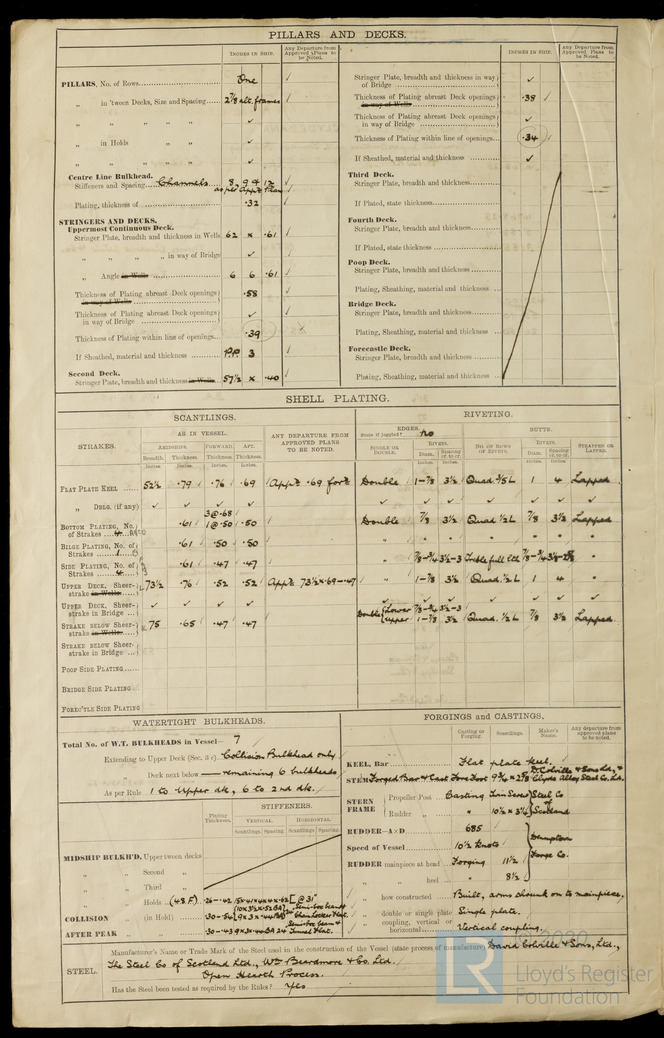 PILLARS AND DECKS.
INCHES IN SHIP.
Any Departure from Approved Plans to be Noted.
PILLARS, No. of Rows One ✓
„ in 'tween Decks, Size and Spacing 2 7/8 alt. frames ✓
„ „ „ „ „ ✓
„ in Holds „ „ ✓
„ „ „ „ ✓
Centre Line Bulkhead.
Stiffeners and Spacing Channels
as per App'd Plan
Plating, thickness of .32
STRINGERS AND DECKS.
Uppermost Continuous Deck.
Stringer Plate, breadth and thickness in Wells 62 x .61
„ „ „ „ in way of Bridge ✓
„ Angle in Wells 6 6 .61
Thickness of Plating abreast Deck openings in way of Wells .58
Thickness of Plating abreast Deck openings in way of Bridge ✓
Thickness of Plating within line of openings .39
If Sheathed, material and thickness P.P. 3
Second Deck.
Stringer Plate, breadth and thickness in Wells 57½ x .40
INCHES IN SHIP.
Any Departure from Approved Plans to be Noted.
Stringer Plate, breadth and thickness in way of Bridge ✓
Thickness of Plating abreast Deck openings in way of Wells .38 ✓
Thickness of Plating abreast Deck openings in way of Bridge ✓
Thickness of Plating within line of openings .34
If Sheathed, material and thickness ✓
Third Deck.
Stringer Plate, breadth and thickness
If Plated, state thickness
Fourth Deck.
Stringer Plate, breadth and thickness
If Plated, state thickness
Poop Deck.
Stringer Plate, breadth and thickness
Plating, Sheathing, material and thickness
Bridge Deck.
Stringer Plate, breadth and thickness
Plating, Sheathing, material and thickness
Forecastle Deck.
Stringer Plate, breadth and thickness
Plating, Sheathing, material and thickness
SHELL PLATING.
SCANTLINGS.
RIVETING.
STRAKES.
AS IN VESSEL.
AMIDSHIPS. FORWARD. AFT.
Breadth. Thickness. Thickness. Thickness.
Inches Inches. Inches Inches
ANY DEPARTURE FROM APPROVED PLANS TO BE NOTED.
EDGES.
State if joggled? no
SINGLE OR DOUBLE.
RIVETS.
Diam. Spacing cr. to cr.
BUTTS.
NO. OF ROWS OF RIVETS.
RIVETS.
Diam. Spacing cr. to cr.
STRAPPED OR LAPPED.
FLAT PLATE KEEL 52½ .79 .76 .69 App'd .69 for'd Double 1-7/8 3½ Quad. 1 4 Lapped
„ DBLG. (if any) ✓ ✓ ✓ ✓
BOTTOM PLATING, No. of Strakes .61 3@.68 1@.50 .50 Double 7/8 3½ Quad. ½ L 7/8 3½ Lapped
BILGE PLATING, No. of Strakes 1 .61 .50 .50 „ „ „ „ „ „
SIDE PLATING, No. of Strakes 4 .61 .47 .47 „ 7/8-3/4 3½-3 Treble full Ltd „
UPPER DECK, Sheerstrake in Wells 73½ .76 .52 .52 App'd 73½x.69-.47 „ 1-7/8 3½ Quad. ½ L 1 4 „
UPPER DECK, Sheerstrake in Bridge ✓ ✓ ✓ ✓
STRAKE BELOW Sheerstrake in Wells 75 .65 .47 .47 Double {Lower 7/8-3/4 3½-3 Upper 1-7/8 3½ Quad. ½ L 7/8 3½ Lapped
STRAKE BELOW Sheerstrake in Bridge
POOP SIDE PLATING
BRIDGE SIDE PLATING
FORE'C'TLE SIDE PLATING
WATERTIGHT BULKHEADS.
Total No. of W.T. BULKHEADS in Vessel— 7
Extending to Upper Deck (Sec. 3 c) Collision Bulkhead only
Deck next below — remaining 6 bulkheads
As per Rule 1 to Upper dk, 6 to 2nd dk.
STIFFENERS.
Plating Thickness.
VERTICAL. HORIZONTAL.
Scantlings. Spacing. Scantlings. Spacing.
MIDSHIP BULKH'D, Upper tween decks
„ „ Second „
„ „ Third „
„ „ Holds
COLLISION „ (in Hold)
AFTER PEAK „ „
FORGINGS and CASTINGS.
Casting or Forging.
Scantlings.
Maker's Name.
Any departure from approved plans to be noted.
KEEL, Bar Flat plate keel.
STEM Forged Bar & Cast Fore Foot 9¾ x 2⅝ D. Colville & Sons Ld., & Clyde Alloy Steel Co. Ld.
STERN FRAME
Propeller Post Casting
Rudder „ „ 10½ x 3¼
Steel Co of Scotland
RUDDER—A×D 685
Speed of Vessel 10½ knots
RUDDER mainpiece at head Forging 11½
„ „ heel „ 8½
Forge Co.
„ how constructed Built, arms shrunk on to mainpiece.
„ double or single plate Single plate.
„ coupling, vertical or horizontal Vertical coupling.
STEEL.
Manufacturer's Name or Trade Mark of the Steel used in the construction of the Vessel (state process of manufacture) David Colville & Sons, Ltd.,
The Steel Co of Scotland Ltd., Wm Beardmore & Co. Ltd.
Open Hearth Process.
Has the Steel been tested as required by the Rules? Yes
© 2020
LR
Lloyd's Register
Foundation